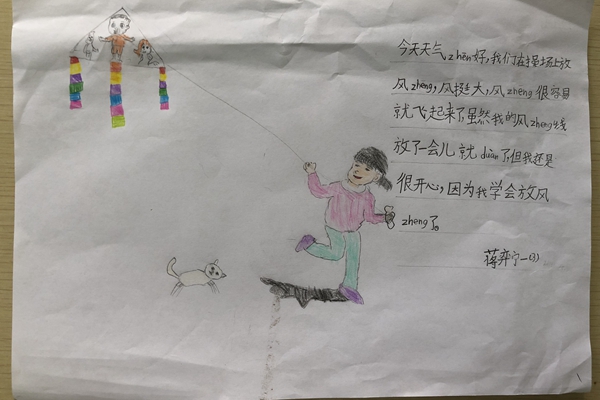 今天天气zhēn好,我们在操场上放
风zheng,风挺大,风zheng很容易
就飞起来了虽然我的风zheng线
放了一会儿就duàn了,但我还是
很开心,因为我学会放风
zheng了。
蒋弈宁一(3)